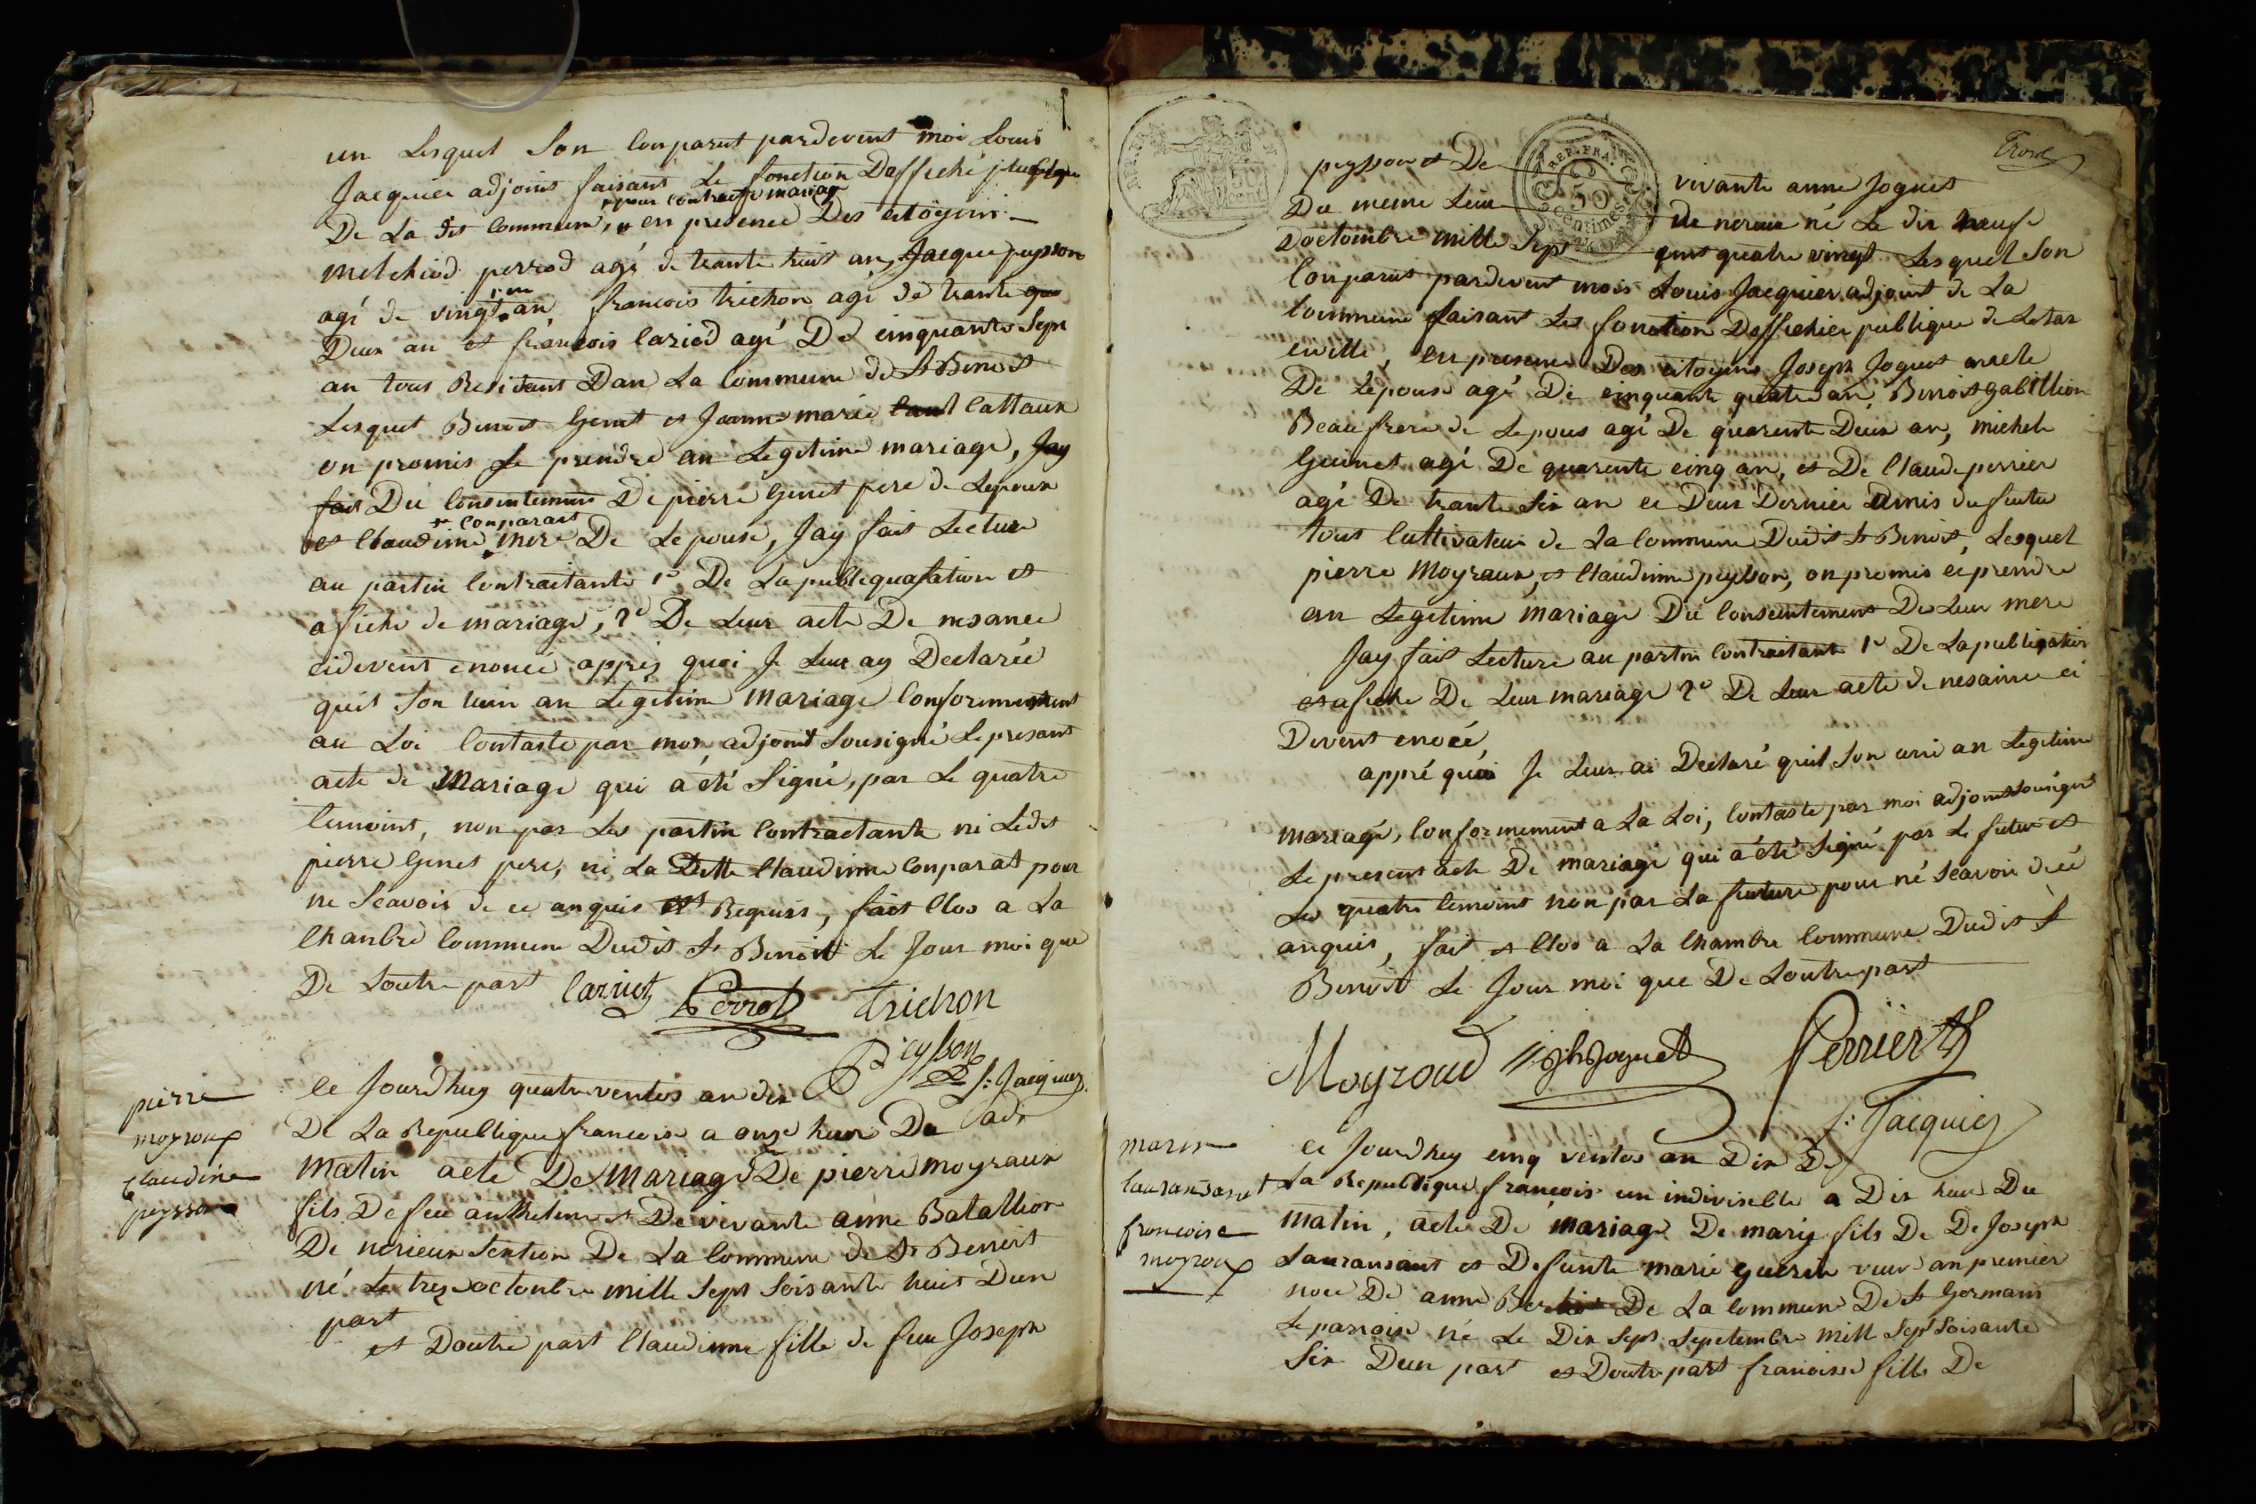 un Lesquel Son Conparut pardevent moi Louis
Jacquier adjoint faisant Le fonction Daffiché publique
pour contracté mariage
De La dit Commune, en presence Des citöyeins
melchiod perrod agé de trante huit an, Jacque peysson
agé de vingt un an, francois trichon agé de trante
Deux an et francois Cariod agé De cinquante Sept
an tous Residant Dan La Commune de St Benoit
Lesquel Benoit Genet et Jeanne marie Cattaux
on promis Se prendre an Legetime mariage, Jay
fait Du Consentement De pierre Genet pere de Lepoux
et Claudinne Conparat mere De Lepouse, Jay fait Lecture
au partin Contraitante 1º De La publequasation et
afiche de mariage, 2º De Leur acte De nesance
cidevent enoncé, apprés quoi Je Leur ay Declarée
quil Son unis an Legitime mariage Conformement
au Loi Contasté par moi adjoint Sousigné Le presant
acte de Mariage qui a été Signé, par Le quatre
temoint, non par Les partin Contractante ni Ledit
pierre Genet pere, ni La Ditte Claudinne Conparat pour
ne Scavoir de ce anquis et Requis, fait Clos a La
Chanbre Commune Dudit St Benoit Le Jour moi que
De Loutre part Cariot Perrod Trichon
Peysson
J: Jacquier
adt
pierre
moyroux
Claudine
peysson
Ce Jourdhuy quatre ventos an dix
De La Republique francoise a onze heur Du
Matin acte De Mariage De pierre moyraux
fils De feu anthelme et De vivante anne Batallion
De nerieux Section De La Commune de St Benoit
né Le treze octonbre mille Sept Soisante huit Dun
part
et Doutre part Claudinne fille de feu Joseph
Trove
peysson et De vivante anne Joguet
Du meme Lieu de nerieu né Le dix neuf
Doctombre mille Sept cent quatre vingt Lesquel Son
REP. FRA.
50
centimes
Conparut pardevent moi Louis Jacquier adjoint de La
Commune faisant Les fonction Dafficher publique de Letat
civille, en presence Des citoyens Joseph Joguet oncle
De Lépouse agé De cinquante quatre an, Benoit gabillion
Beau frere de Lepous agé De quarente Deux an, michele
Guinet agé De quarente cinq an, et De Claude perrier
agé De trante Six an ce Deux Dernier amis du futur
tous Cultivateur de La Commune Dudit St Benoit, Lesquel
pierre Moyraux, et Claudinne peysson, on promis ce prendre
an Legetime Mariage Du Consentement De Leur mere
Jay fait Lecture au partin Contraitante 1º De La publigation
et afiche De Leur mariage 2º De Leur acte de nesaince ci
Devent enocé,
appré quoi Je Leur ai Declaré quil Son unie an Legetime
mariage, Conformement a La Loi, Contasté par moi adjoint Sousigné
Le present acte De mariage qui a été Signé par Le futur et
Les quatre temoint non par La future pour né Scavoir de ce
anquis, fait et Clos a La Chambre Commune Dudit St
Benoit Le Jour moi que De Loutre part
Moyroud Jh Joguet Perrier
J: Jacquier
marin
Lauransant
francoise
moyroux
ce Jourdhuy cinq ventos an Dix De
La Republique francois un indiviseble a Dix heur Du
Matin, acte De mariage De mariy fils De De Joseph
Lauransant et Defunte marie guerin veuve an premier
noce De anne De La Commune De St Germain
Le parroise né Le Dix Sept Sepetembre mill Sept Soisante
Six Dun part et Doutre part francoise fille De